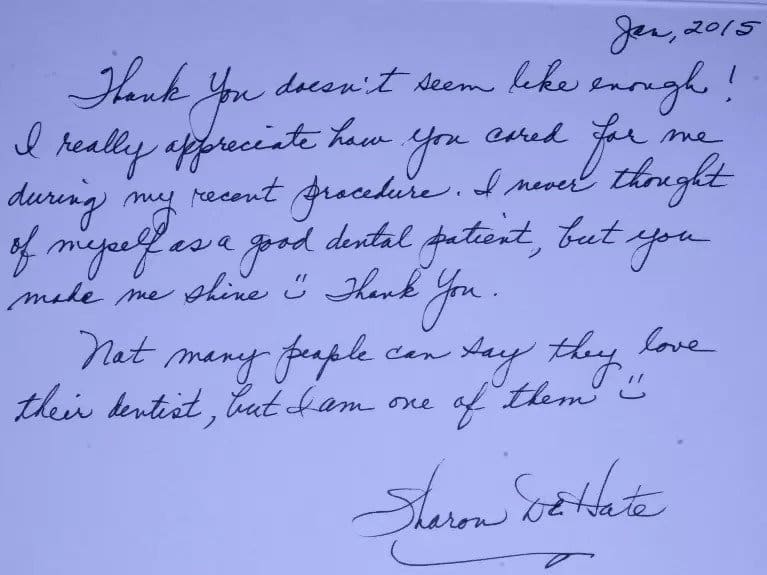 Jan, 2015
Thank You doesn't seem like enough!
I really appreciate how you cared for me
during my recent procedure. I never thought
of myself as a good dental patient, but you
make me shine Thank You.
Not many people can say they love
their dentist, but I am one of them
Sharon DeHate